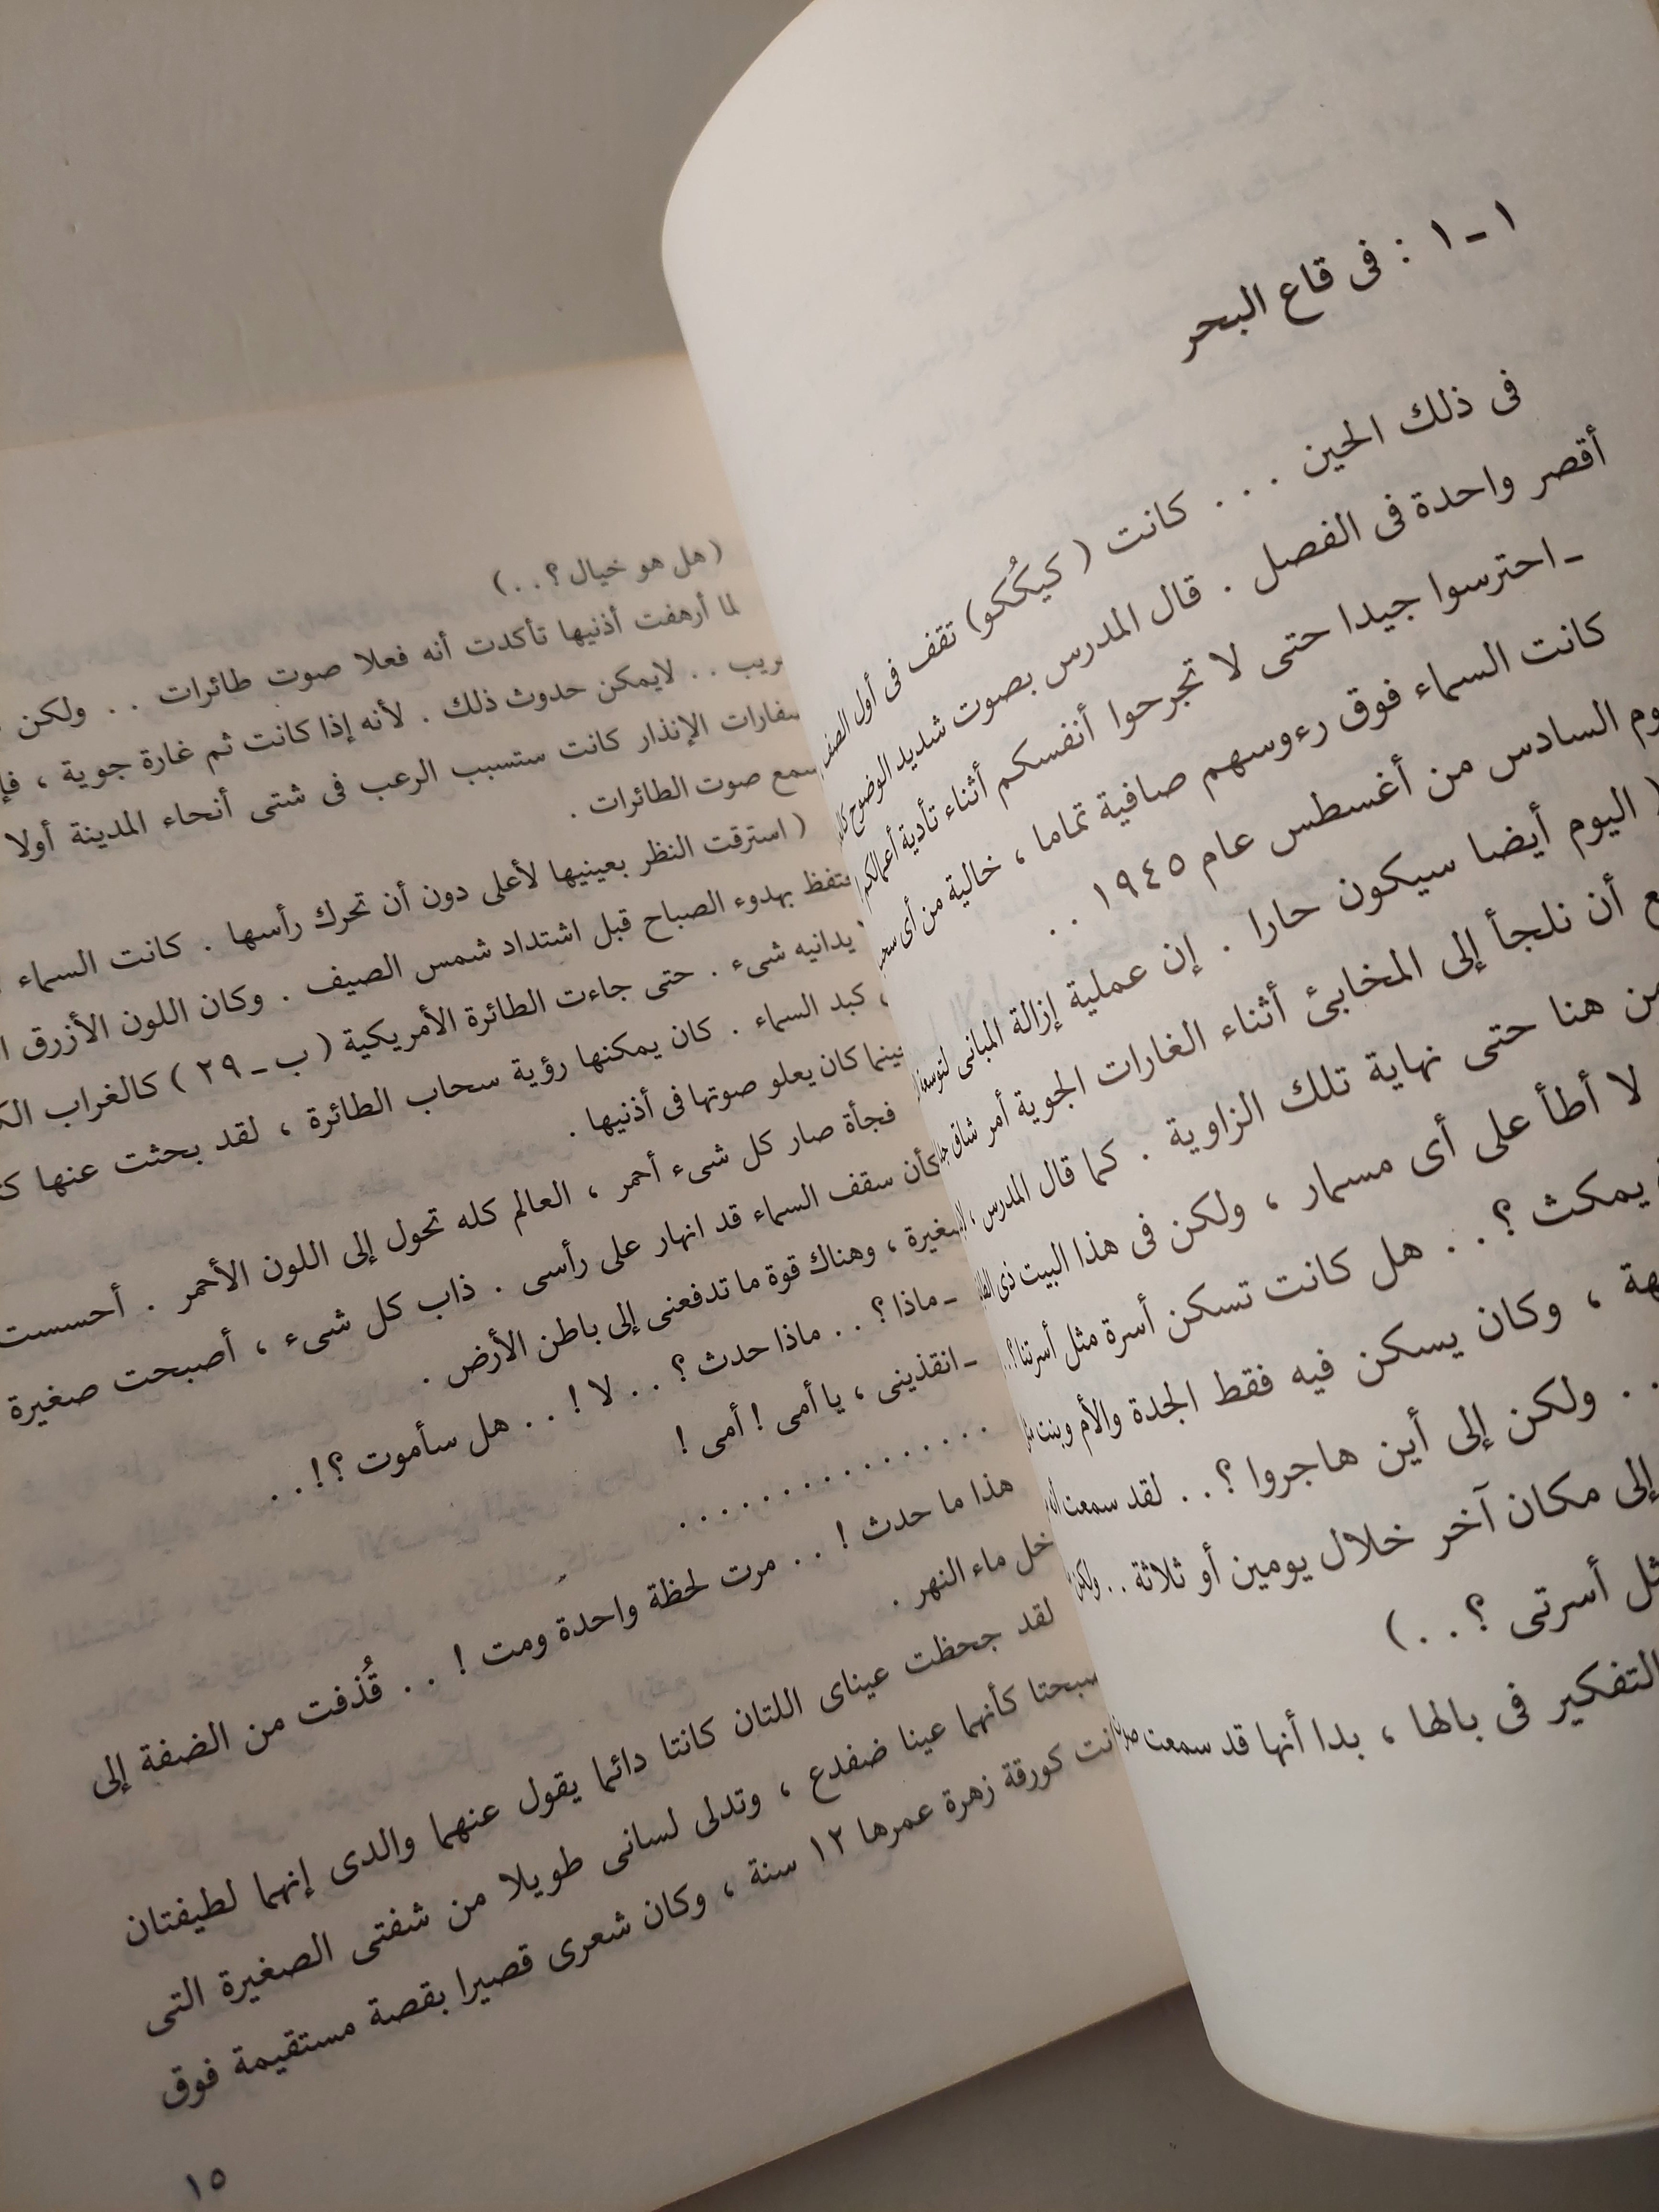 ١-١ : فى قاع البحر
فى ذلك الحين . . . كانت ( كيكُكو) تقف فى أول الصف
أقصر واحدة فى الفصل . قال المدرس بصوت شديد الوضوح
-احترسوا جيدا حتى لا تجرحوا أنفسكم أثناء تأدية أعمالكم
كانت السماء فوق رءوسهم صافية تماما ، خالية من أى
السادس من أغسطس عام ١٩٤٥ . .
( اليوم أيضا سيكون حارا . إن عملية إزالة المبانى
أن نلجأ إلى المخابئ أثناء الغارات الجوية أمر شاق
هنا حتى نهاية تلك الزاوية . كما قال المدرس ،
لا أطأ على أى مسمار ، ولكن فى هذا البيت ذى
يمكث ؟ . . هل كانت تسكن أسرة مثل أسرتنا؟ . .
، وكان يسكن فيه فقط الجدة والأم وبنت
. . ولكن إلى أين هاجروا ؟ . . لقد سمعت
إلى مكان آخر خلال يومين أو ثلاثة . . ولكن
أسرتى ؟ . . )
التفكير فى بالها ، بدا أنها قد سمعت
(هل هو خيال ؟ . . )
لما أرهفت أذنيها تأكدت أنه فعلا صوت طائرات . . ولكن
. . لايمكن حدوث ذلك . لأنه إذا كانت ثم غارة جوية ،
الإنذار كانت ستسبب الرعب فى شتى أنحاء المدينة أولا
صوت الطائرات .
( استرقت النظر بعينيها لأعلى دون أن تحرك رأسها . كانت السماء
بهدوء الصباح قبل اشتداد شمس الصيف . وكان اللون الأزرق
يدانيه شىء . حتى جاءت الطائرة الأمريكية ( ب - ٢٩ ) كالغراب
كبد السماء . كان يمكنها رؤية سحاب الطائرة ، لقد بحثت عنها
كان يعلو صوتها فى أذنيها .
فجأة صار كل شىء أحمر ، العالم كله تحول إلى اللون الأحمر . أحسست
كأن سقف السماء قد انهار على رأسى . ذاب كل شىء ، أصبحت صغيرة
، وهناك قوة ما تدفعنى إلى باطن الأرض .
-ماذا ؟ . . ماذا حدث ؟ . . لا ! . . هل سأموت ؟! . .
-انقذينى ، يا أمى ! أمى !
. . . . . . . . . . . . . . .
هذا ما حدث ! . . مرت لحظة واحدة ومت ! . . قُذفت من الضفة إلى
ماء النهر .
لقد جحظت عيناى اللتان كانتا دائما يقول عنهما والدى إنهما لطيفتان
كأنهما عينا ضفدع ، وتدلى لسانى طويلا من شفتى الصغيرة التى
كورقة زهرة عمرها ١٢ سنة ، وكان شعرى قصيرا بقصة مستقيمة فوق
١٥